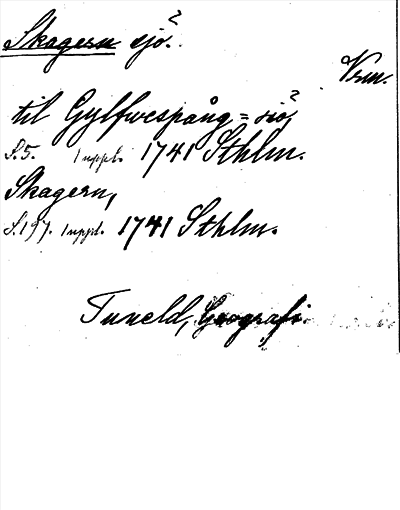 Skagern sjö?.
Vrm.
til Gylfwespång = siö?
S. 5. 1 uppl. 1741 Sthlm.
Skagern,
S. 197. 1 uppl. 1741 Sthlm.
Tuneld, Geografi.